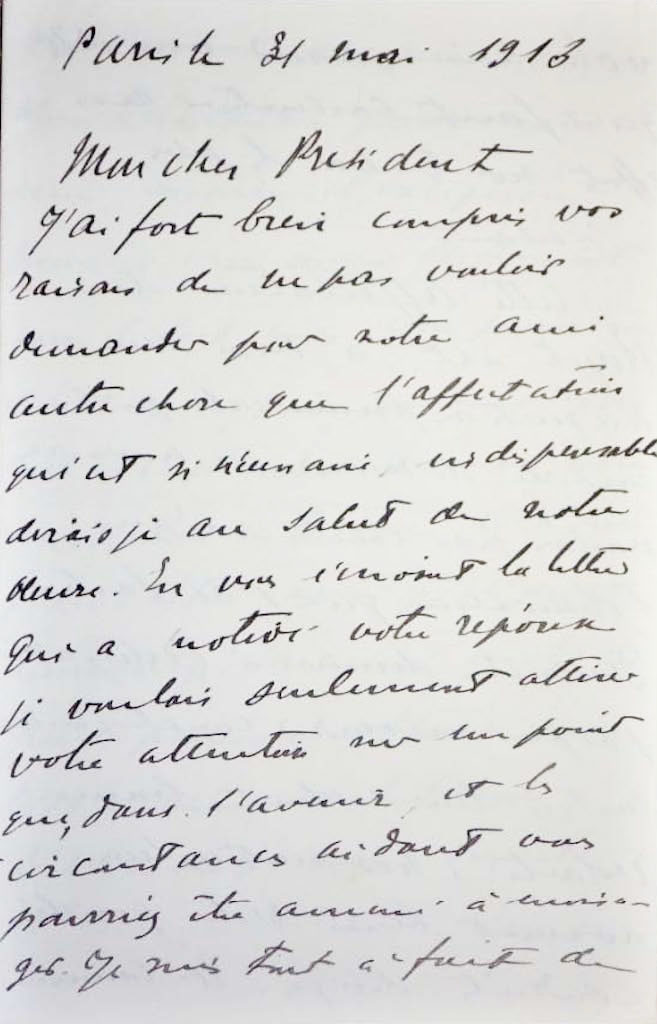 Paris le 31 mai 1913
Mon cher Président
J'ai fort bien compris vos
raisons de ne pas vouloir
demander pour notre ami
autre chose que l'affectation
qui est si nécessaire, indispensable
dirais je au salut de notre
œuvre. En vous envoyant la lettre
qui a motivé votre réponse
je voulais seulement attirer
votre attention sur un point
que, dans l'avenir et les
circonstances aidant vous
pourriez être amené à envisa-
ger. Je suis tout à fait de